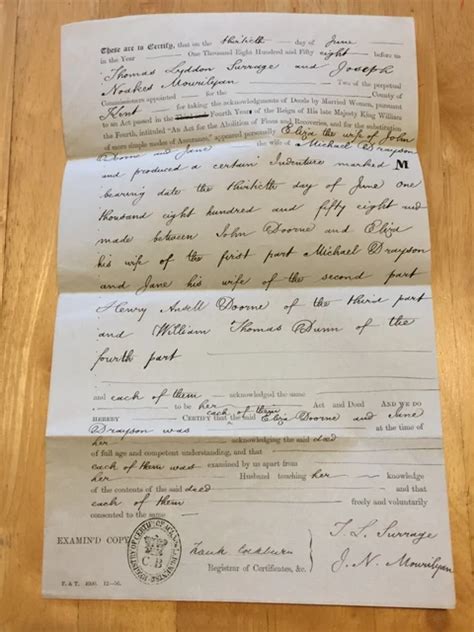 These are to Certify, that on the thirtieth day of June
in the Year One Thousand Eight Hundred and Fifty eight before us
Thomas Lyddon Surrage and Joseph
Noakes Mourilyan Two of the perpetual
Commissioners appointed for the County of
Kent for taking the acknowledgments of Deeds by Married Women, pursuant
to an Act passed in the Fourth Year of the Reign of His late Majesty King William
the Fourth, intituled "An Act for the Abolition of Fines and Recoveries, and for the substitution
of more simple modes of Assurance," appeared personally Eliza the wife of John
Doorne and Jane the wife of Michael Drayson
and produced a certain Indenture marked M
bearing date the thirtieth day of June one
thousand eight hundred and fifty eight and
made between John Doorne and Eliza
his wife of the first part Michael Drayson
and Jane his wife of the second part
Henry Ansell Doorne of the third part
and William Thomas Dunn of the
fourth part
and each of them acknowledged the same
to be her Act and Deed AND WE DO
each of them
HEREBY CERTIFY that the said Eliza Doorne and Jane
Drayson was at the time of
her acknowledging the said deed
of full age and competent understanding, and that
each of them was examined by us apart from
her Husband touching her knowledge
of the contents of the said deed and that
each of them freely and voluntarily
consented to the same
EXAMIN'D COPY
C B
Frank Cockburn
Registrar of Certificates, &c.
T. L. Surrage
J. N. Mourilyan